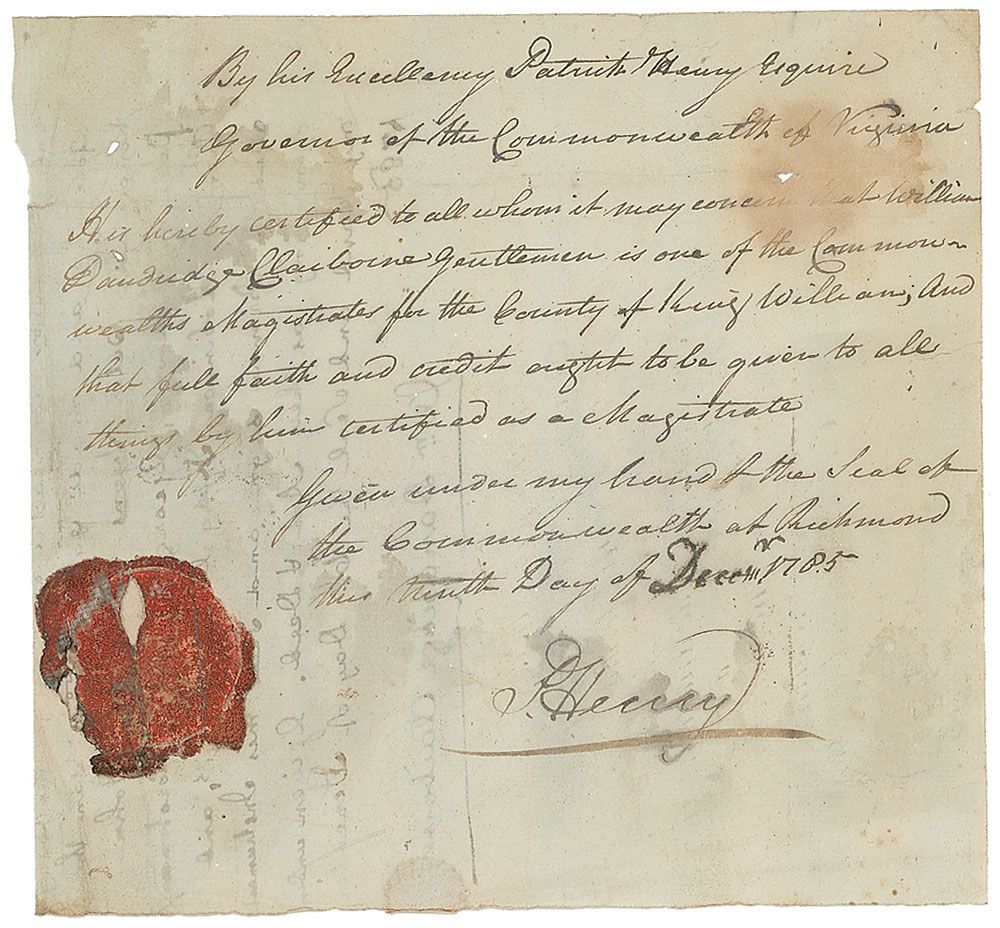 By his Excellency Patrick Henry Esquire
Governor of the Commonwealth of Virginia
It is hereby certified to all whom it may concern that William
Dandridge Claiborne Gentlemen is one of the Common-
wealths Magistrates for the County of King William; And
that full faith and credit ought to be given to all
things by him certified as a Magistrate
Given under my hand & the Seal of
the Commonwealth at Richmond
this tenth Day of Decemr 1785
P. Henry